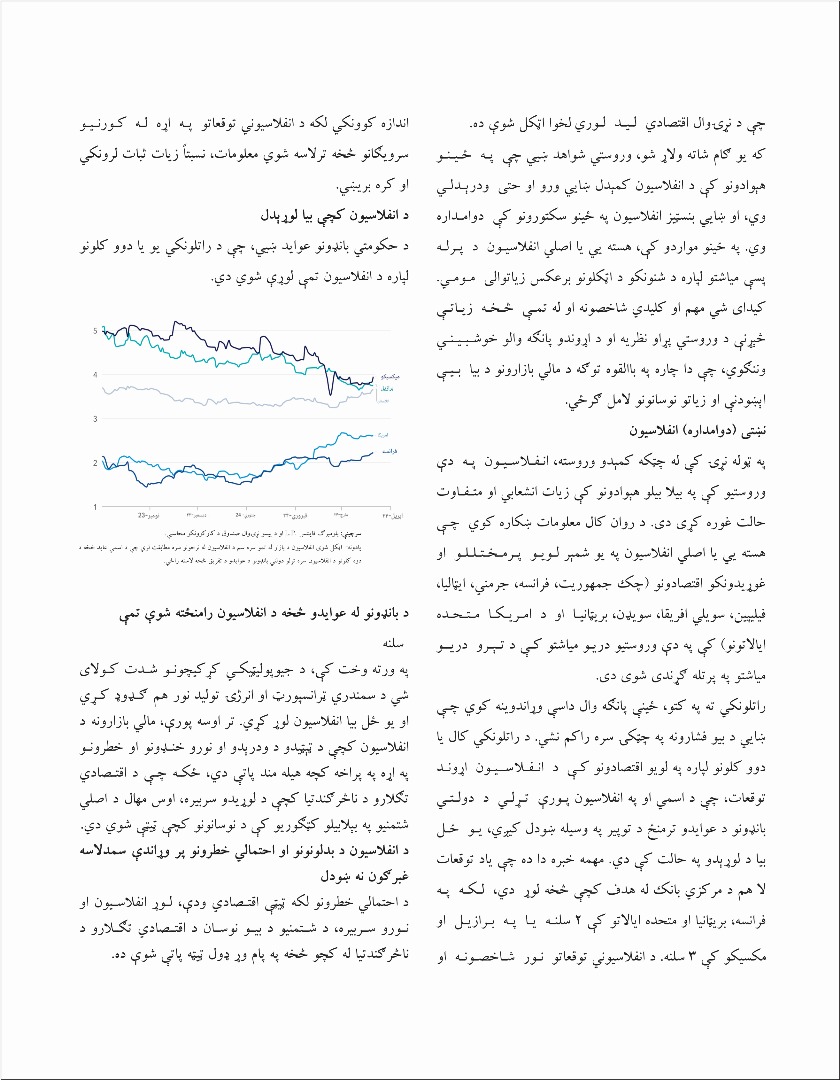 چې د نړۍ‌وال اقتصادي لـیـد لـوري لخوا اټکل شوې ده.
که یو ګام شاته ولاړ شو، وروستي شواهد ښیي چې پـه ځـیـنـو
هېوادونو کې د انفلاسیون کمېدل ښایي ورو او حتی ودرېـدلـي
وي، او ښایي بنسټیز انفلاسیون په ځینو سکتورونو کې دوامـداره
وي. په ځینو مواردو کې، هسته یي یا اصلي انفلاسیـون د پـرلـه
پسې میاشتو لپاره د شنونکو د اټکلونو برعکس زیاتوالی مـومـي.
کیدای شي مهم او کلیدي شاخصونه او له تمـې څـخـه زیـاتـې
څېړنې د وروستي پړاو نظریه او د اړوندو پانګه والو خوشبـیـنـي
وننګوي، چې دا چاره په باالقوه توګه د مالي بازارونو د بیا بـیـې
اېښودنې او زیاتو نوسانونو لامل ګرځي.
نښتی (دوامداره) انفلاسیون
په ټوله نړۍ کې له چټکه کمېدو وروسته، انـفـلاسـیـون پـه دې
وروستیو کې په بیلا بیلو هېوادونو کې زیات انشعابي او متـفـاوت
حالت غوره کړی دی. د روان کال معلومات ښکاره کوي چـې
هسته یي یا اصلي انفلاسیون په یو شمېر لـویـو پـرمـخـتـلـلـو او
غوړیدونکو اقتصادونو (چک جمهوریت، فرانسه، جرمني، ایټالیا،
فیلیپین، سویلي افریقا، سویډن، بریټانیـا او د امـریـکـا مـتـحـده
ایالاتونو) کې په دې وروستیو دریـو میاشتو کـې د تـېـرو دریـو
میاشتو په پرتله ګړندی شوی دی.
راتلونکي ته په کتو، ځینې پانګه وال داسې وړاندوینه کوي چـې
ښایي د بیو فشارونه په چټکۍ سره راکم نشي. د راتلونکي کال یا
دوو کلونو لپاره په لویو اقتصادونو کـې د انـفـلاسـیـون اړونـد
توقعات، چې د اسمي او په انفلاسیون پـورې تـړلـې د دولـتـي
بانډونو د عوایدو ترمنځ د توپیر په وسیله ښودل کیږي، یـو ځـل
بیا د لوړېدو په حالت کې دي. مهمه خبره دا ده چې یاد توقعات
لا هم د مرکزي بانک له هدف کچې څخه لوړ دي، لـکـه پـه
فرانسه، بریټانیا او متحده ایالاتو کې ۲ سلنـه یـا پـه بـرازیـل او
مکسیکو کې ۳ سلنه. د انفلاسیوني توقعاتو نـور شـاخصـونـه او
اندازه کوونکي لکه د انفلاسیوني توقعاتو پـه اړه لـه کـورنـیـو
سروېګانو څخه ترلاسه شوي معلومات، نسبتاً زیات ثبات لرونکي
او کره برېښي.
د انفلاسیون کچې بیا لوړېدل
د حکومتي بانډونو عواید ښیي، چې د راتلونکي یو یا دوو کلونو
لپاره د انفلاسیون تمې لوړې شوي دي.
5
4
3
2
1
میکسیکو
برازیل
فرانسه
نومبر-23
دسمبر-۲۳
جنوري-24
فبروري-۲۴
مارچ-۲۴
اپریل-۲۴
د بانډونو له عوایدو څخه د انفلاسیون رامنځته شوې تمې
سلنه
په ورته وخت کې، د جیوپولیټیکـي کړکېچونـو شـدت کـولای
شي د سمندري ټرانسپورټ او انرژۍ تولید نور هم ګـډوډ کـړي
او یو ځل بیا انفلاسیون لوړ کړي. تر اوسه پورې، مالي بازارونه د
انفلاسیون کچې د ټېټېدو د ودرېدو او نورو خنـډونو او خطرونـو
په اړه په پراخه کچه هیله مند پاتې دي، ځکـه چـې د اقتـصادي
تګلارو د ناڅرګندتیا کچې د لوړېدو سربېره، اوس مهال د اصلي
شتمنیو په بېلابیلو کټګوریو کې د نوسانونو کچې ټیټې شوې دي.
د انفلاسیون د بدلونونو او احتمالي خطرونو پر وړاندې سمدلاسه
غبرګون نه ښودل
د احتمالي خطرونو لکه ټیټې اقتـصادي ودې، لـوړ انفلاسیـون او
نـورو سـربېره، د شـتمنیو د بیـو نوسـان د اقتـصادي تګـلارو د
ناڅرګندتیا له کچو څخه په پام وړ ډول ټیټه پاتې شوې ده.